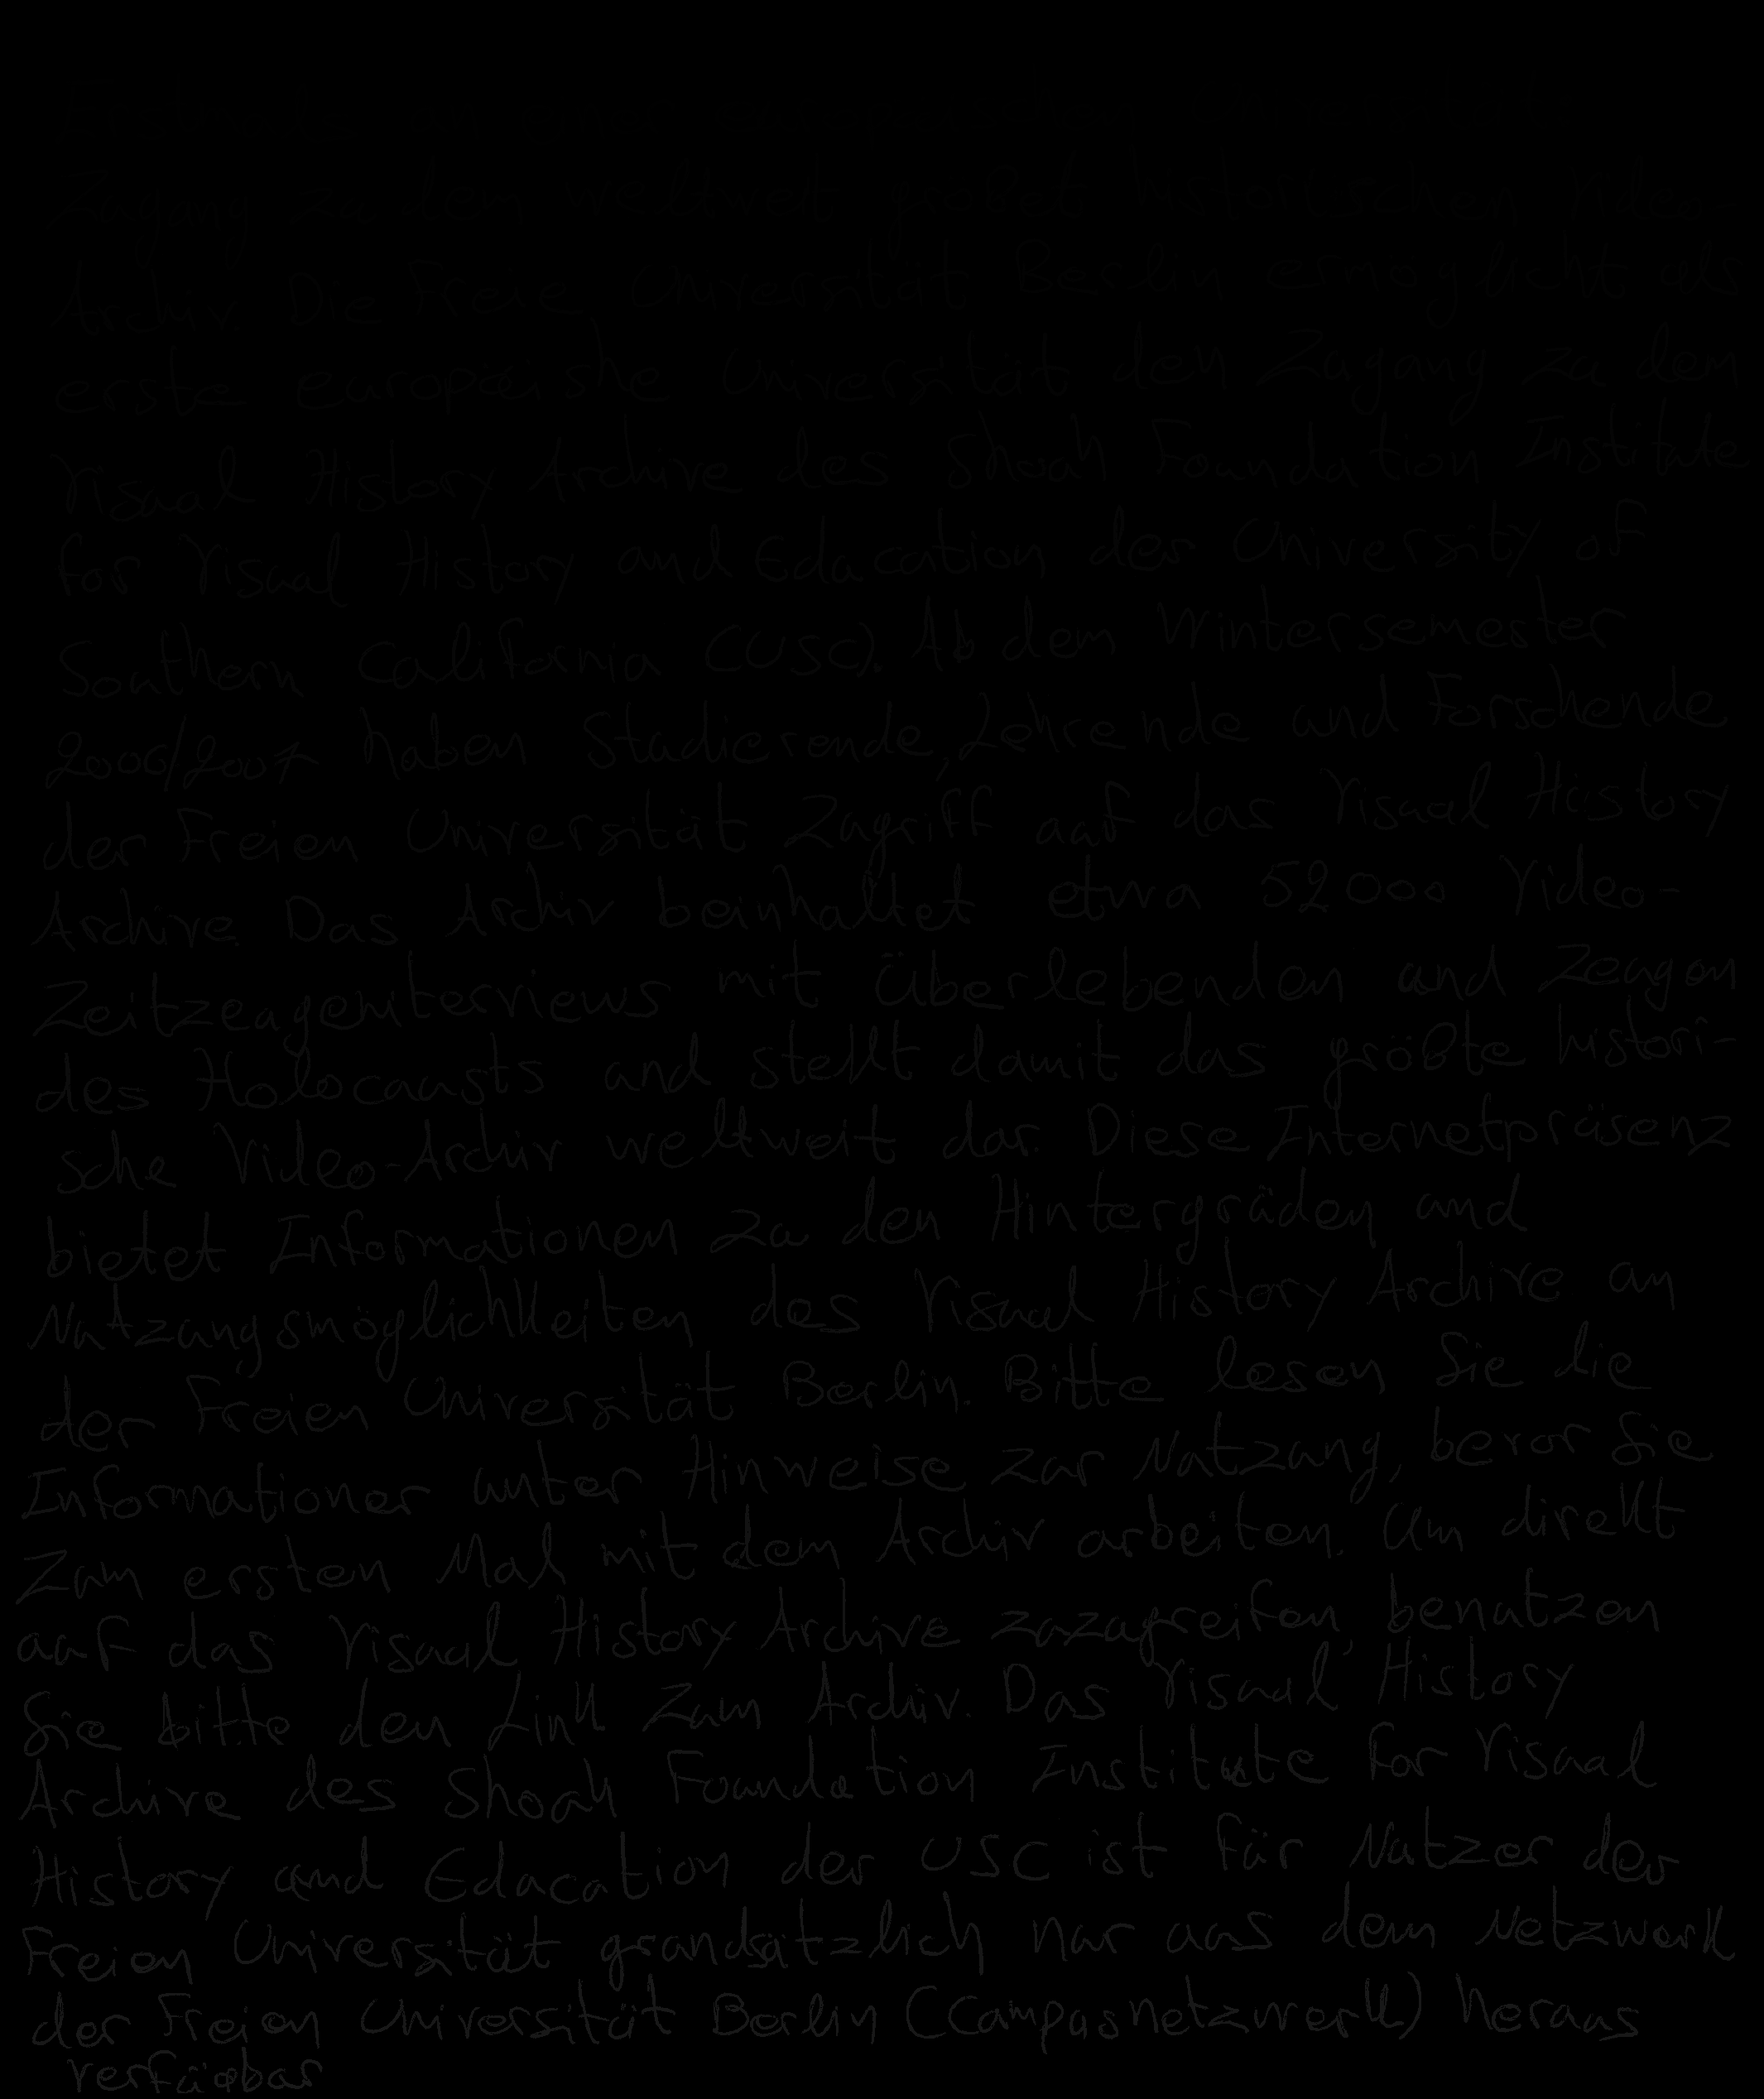 Zugang zu dem weltweit großet historischen Video-
Archiv. Die Freie Universität Berlin ermöglicht als
erste europäishe Universität den Zugang zu dem
Visual History Archive des Shoah Foundation Institute
for Visual History and Education der University of
Southern California (USC). Ab dem Wintersemester
2006/2007 haben Studierende, Lehrende und Forschende
der Freien Universität Zugriff auf das Visual History
Archive. Das Archiv beinhaltet etwa 52000 Video-
Zeitzeugeniterviews mit Überlebenden und Zeugen
des Holocausts und stellt damit das größte histori-
sche Video-Archiv weltweit dar. Diese Internetpräsenz
bietet Informationen zu den Hintergräden und
Nutzungsmöglichkeiten des Visual History Archive an
der Freien Universität Berlin. Bitte lesen Sie die
Informationer unter Hinweise zur Nutzung, bevor Sie
zum ersten Mal mit dem Archiv arbeiten. Um direkt
auf das Visual History Archive zuzugreifen, benutzen
Sie bitte den Link zum Archiv. Das Visual History
Archive des Shoah Foundation Institute for Visual
History and Education der USC ist für Nutzer der
Freien Universität grundsätzlich nur aus dem Netzwerk
der Freien Universität Berlin (Campusnetzwerk) heraus
verfügbar